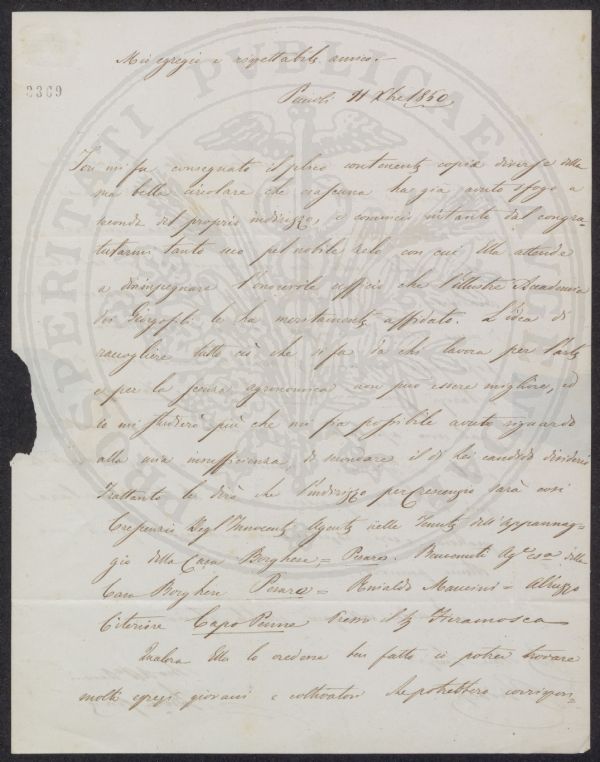 Mio egregio e rispettabile amico.
2369
11 Xbre 1850
Ieri mi fu consegnato il plico contenente copie diverse della
sua bella circolare che ciascuna ha già avuto sfogo a
seconda del proprio indirizzo, e comincio intanto dal congra=
tularmi tanto seco pel nobile zelo con cui Ella attende
a disimpegnare l'onorevole ufficio che l'illustre Accademia
dei Georgofili le ha meritamente affidato. L'idea di
raccogliere tutto ciò che si fa da chi lavora per l'arte
e per la scienza agronomica non può essere migliore, ed
io mi studierò più che mi sia possibile avuto riguardo
alla mia insufficienza, di secondare il di Lei candido desiderio
Frattanto le dirò che l'indirizzo per Crescenzio sarà così
Degl'Innocenti Agente nelle Tenute dell'Appannag=
gio della Casa Borghese = Pesaro. Benvenuti Agte della
Casa Borghese Pesaro = Rinaldo Mancini = Abruzzo
Citeriore Capo Penne
Qualora Ella lo credesse ben fatto ci potrei trovare
molti egregi giovani e coltivatori che potrebbero corrispon=